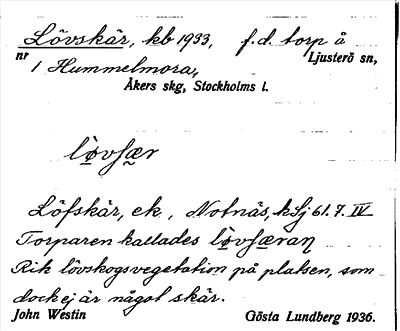 Lövskär, kb 1933, f.d. torp å
nr 1 Hummelmora, Ljusterö sn,
Åkers skg, Stockholms l.
Löfskär, ek, Notnäs, kSj 61.7. IV
Torparen kallades
Rik lövskogsvegetation på platsen, som
dock ej är något skär.
John Westin Gösta Lundberg 1936.